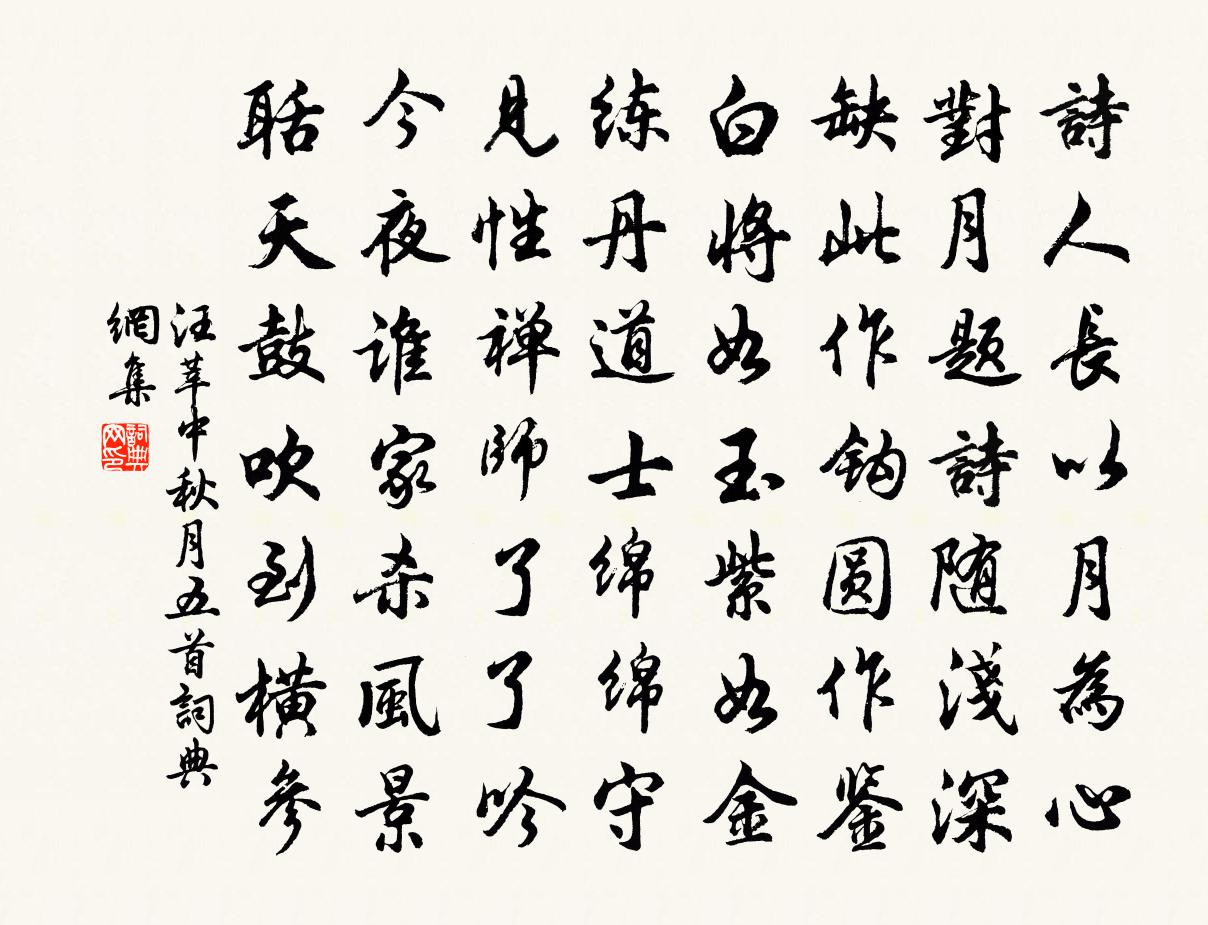 詩人長以月為心
對月題詩随淺深
缺此作鈎圆作鉴
白將如玉紫如金
练丹道士绵绵守
見性禅師了了吟
今夜谁家杀風景
聒天鼓吹到横參
汪莘中秋月五首詞典
網集
詞典
网印